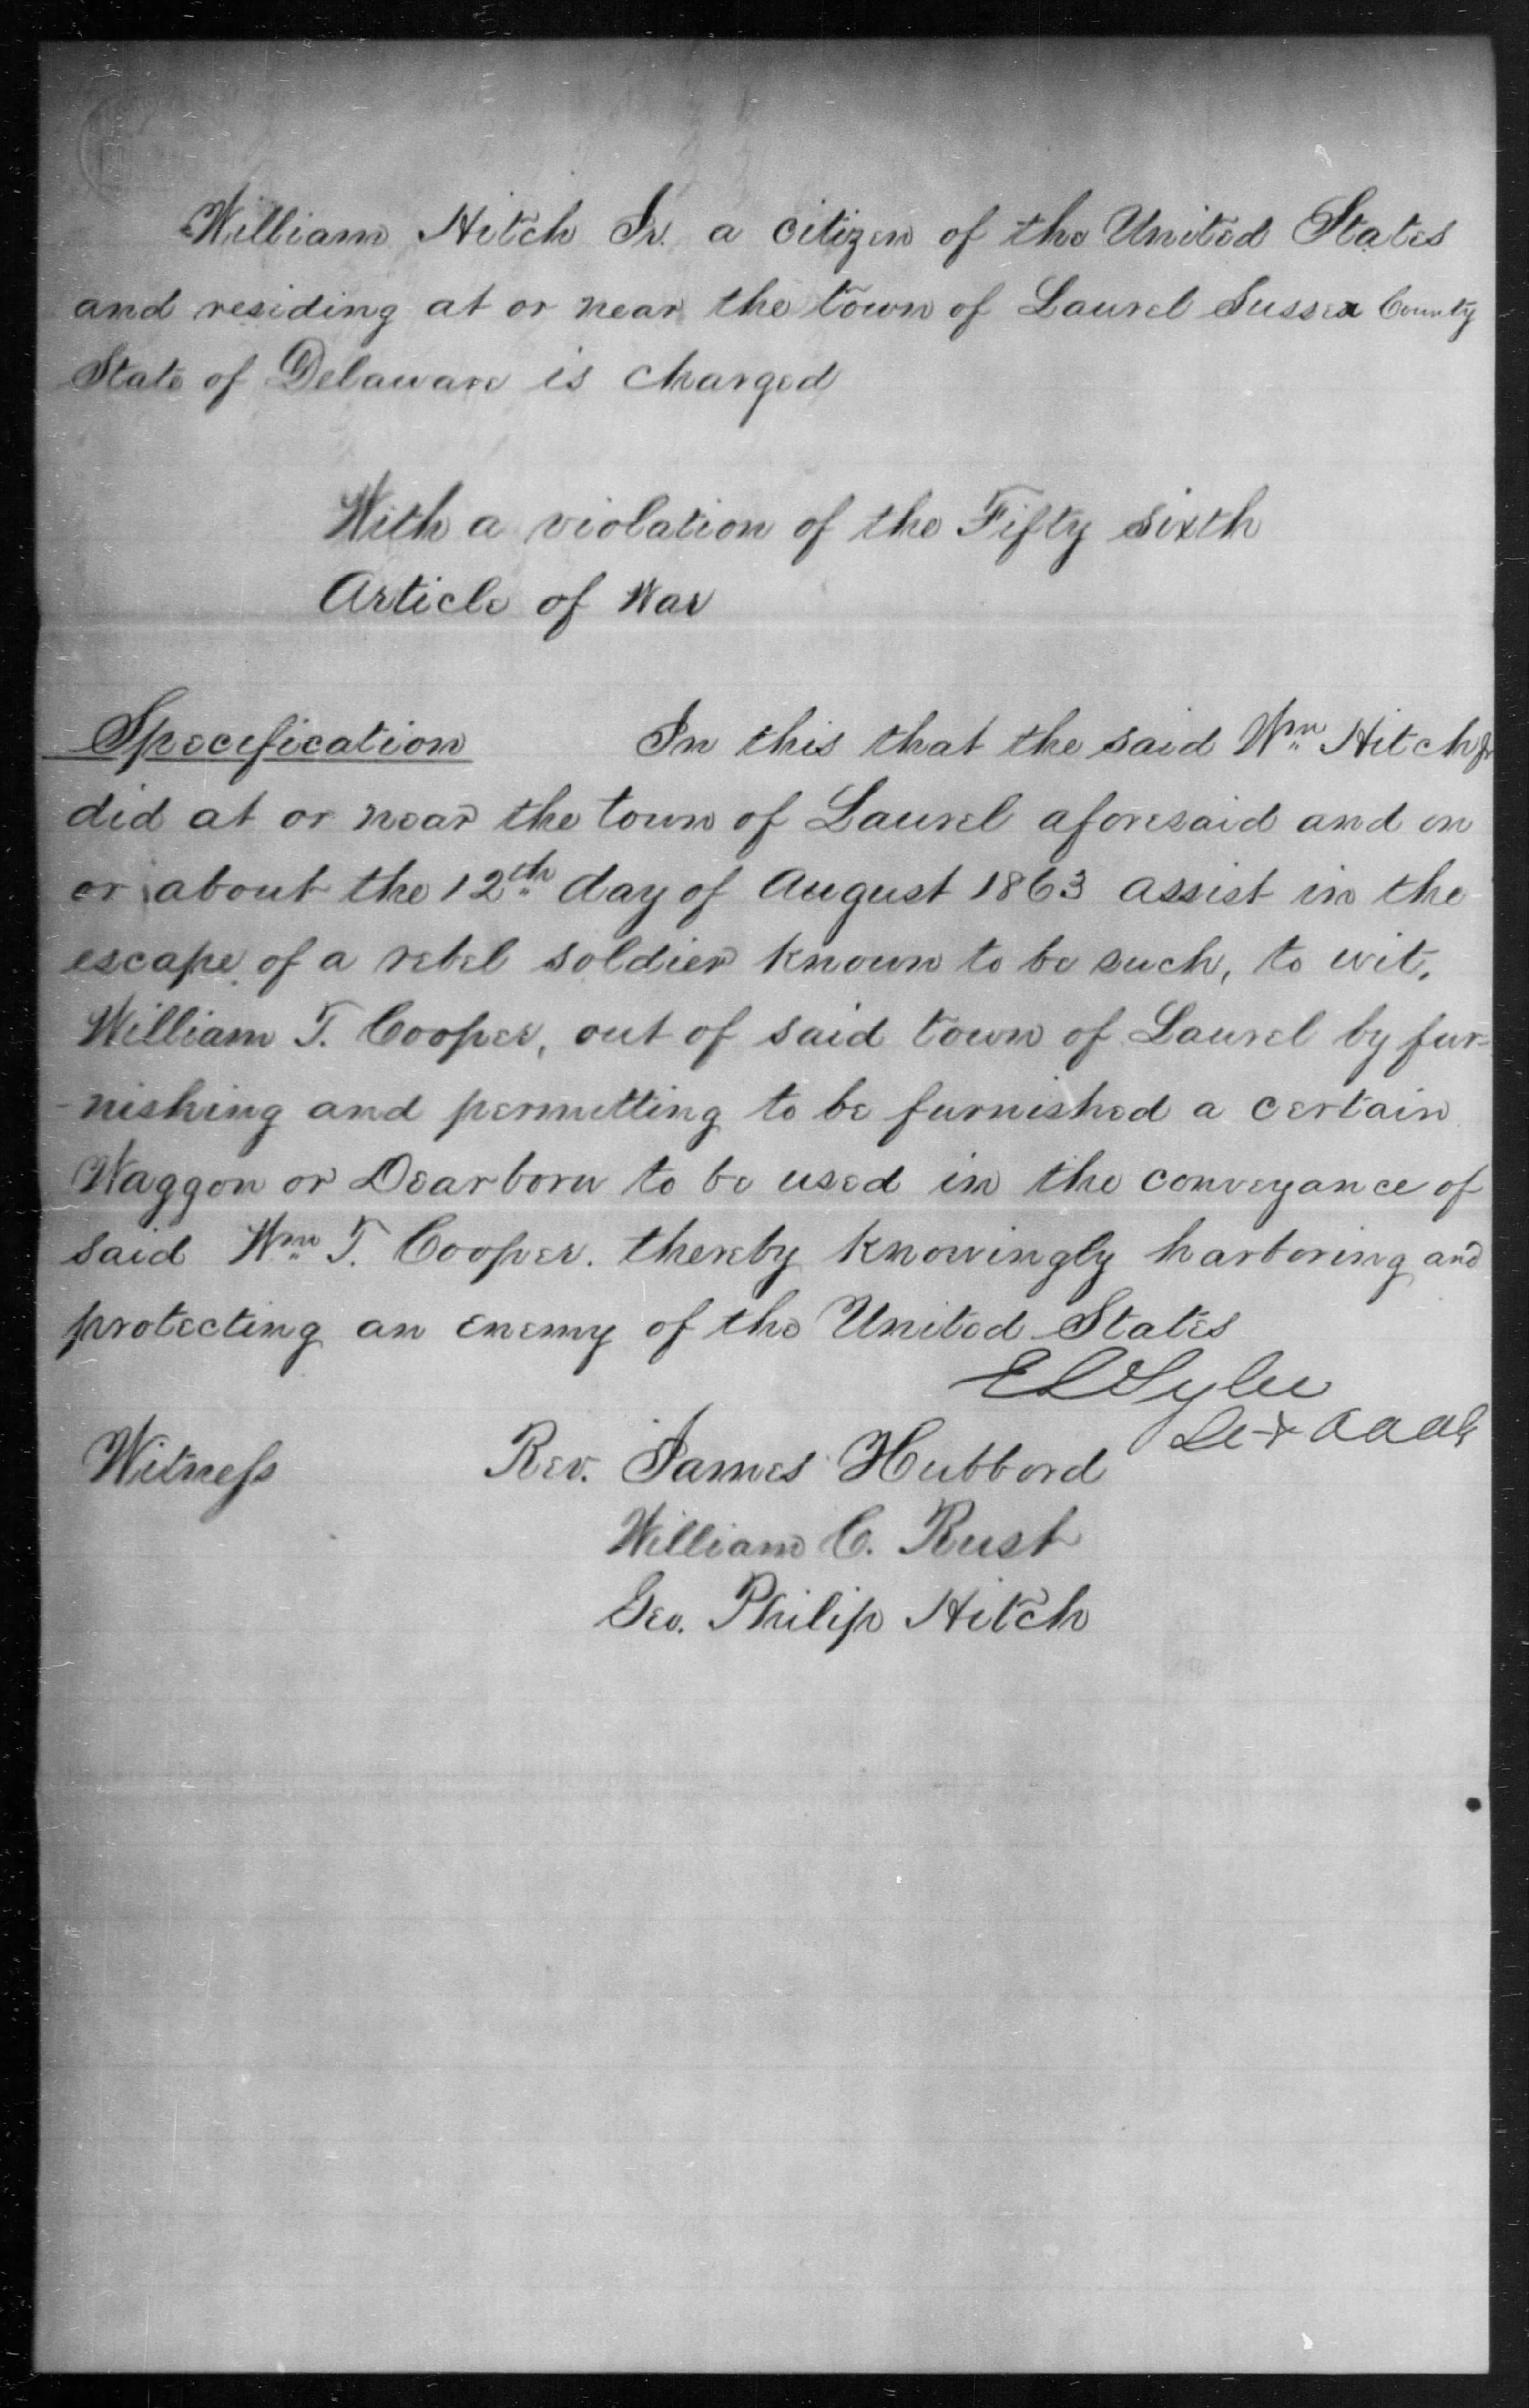 William Hitch Jr. a citizen of the United States
and residing at or near the town of Laurel Sussex County
State of Delaware is charged
With a violation of the Fifty sixth
Article of War
Specification In this that the said Wm Hitch Jr
did at or near the town of Laurel aforesaid and on
or about the 12th day of August 1863 assist in the
escape of a rebel soldier known to be such, to wit,
William T. Cooper, out of said town of Laurel by fur-
-nishing and permitting to be furnished a certain
Waggon or Dearborn to be used in the conveyance of
said Wm T. Cooper. thereby knowingly harboring and
protecting an enemy of the United States
Witness Rev. James Hubbord
William C. Rust
Geo. Philip Hitch